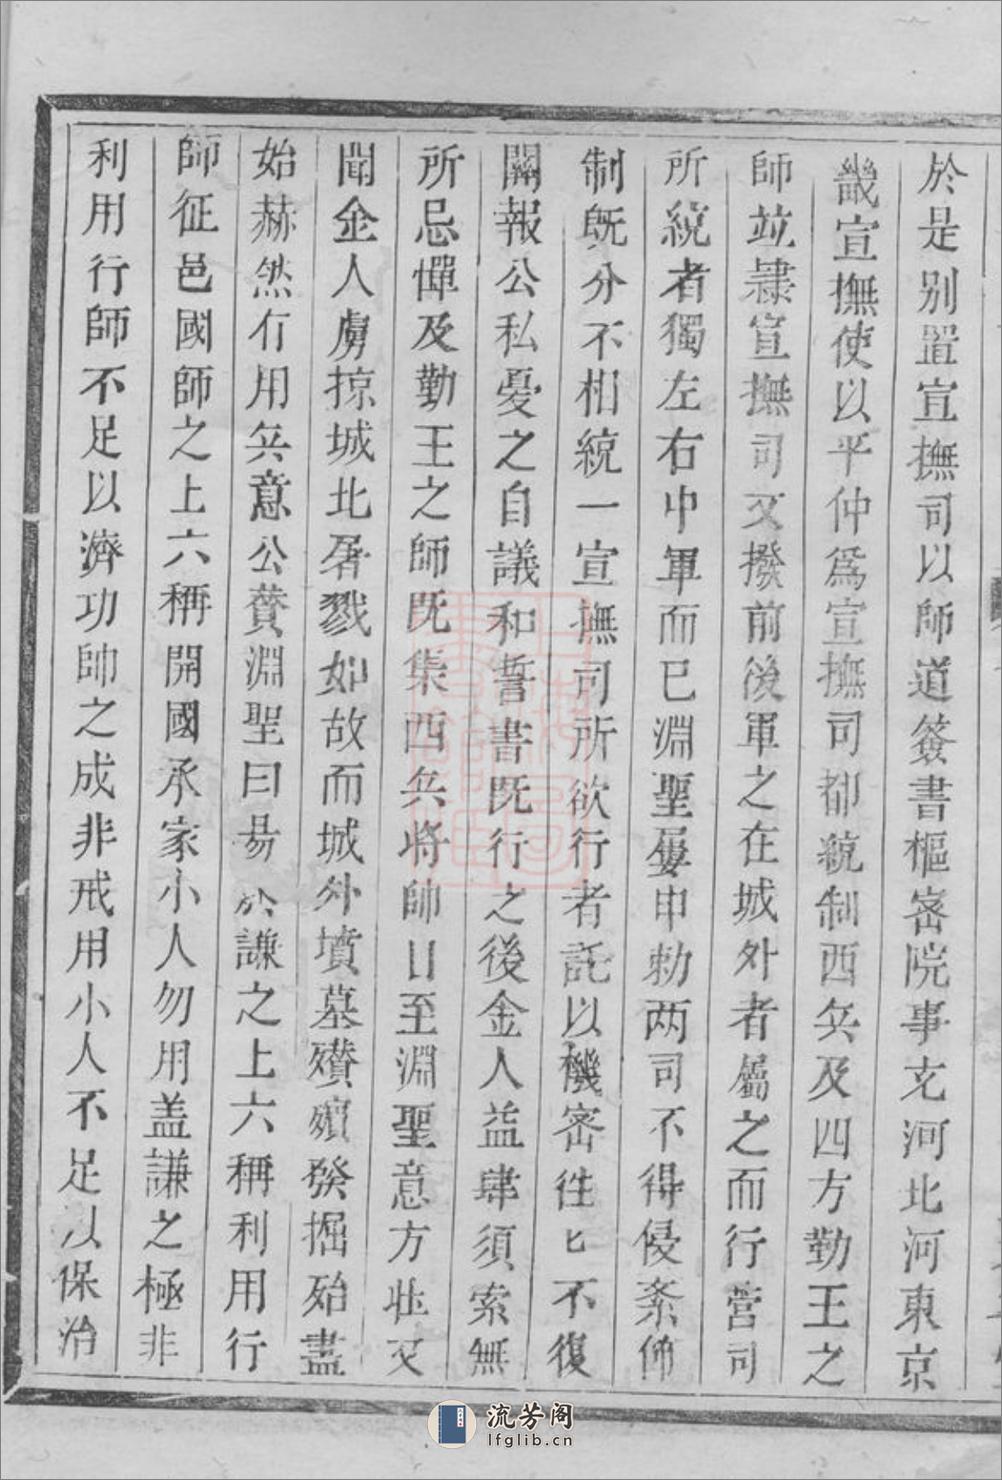 於是别置宣撫司以師道簽書樞密院事充河北河東京
畿宣撫使以平仲爲宣撫司都統制西兵及四方勤王之
師竝隸宣撫司又撥前後軍之在城外者屬之而行營司
所統者獨左右中軍而已淵聖屢申勅两司不得侵紊師
制既分不相統一宣撫司所欲行者託以機密徃匕不復
關報公私憂之自議和誓書既行之後金人益肆須索無
所忌憚及勤王之師既集西兵將帥日至淵聖意方壮又
聞金人虜掠城北屠戮如故而城外墳墓殯發掘殆盡
始赫然有用兵意公賛淵聖曰易於謙之上六稱利用行
師征邑國師之上六稱開國承家小人勿用盖謙之極非
利用行師不足以濟功帥之成非戒用小人不足以保治
流芳阁
lfglib.cn